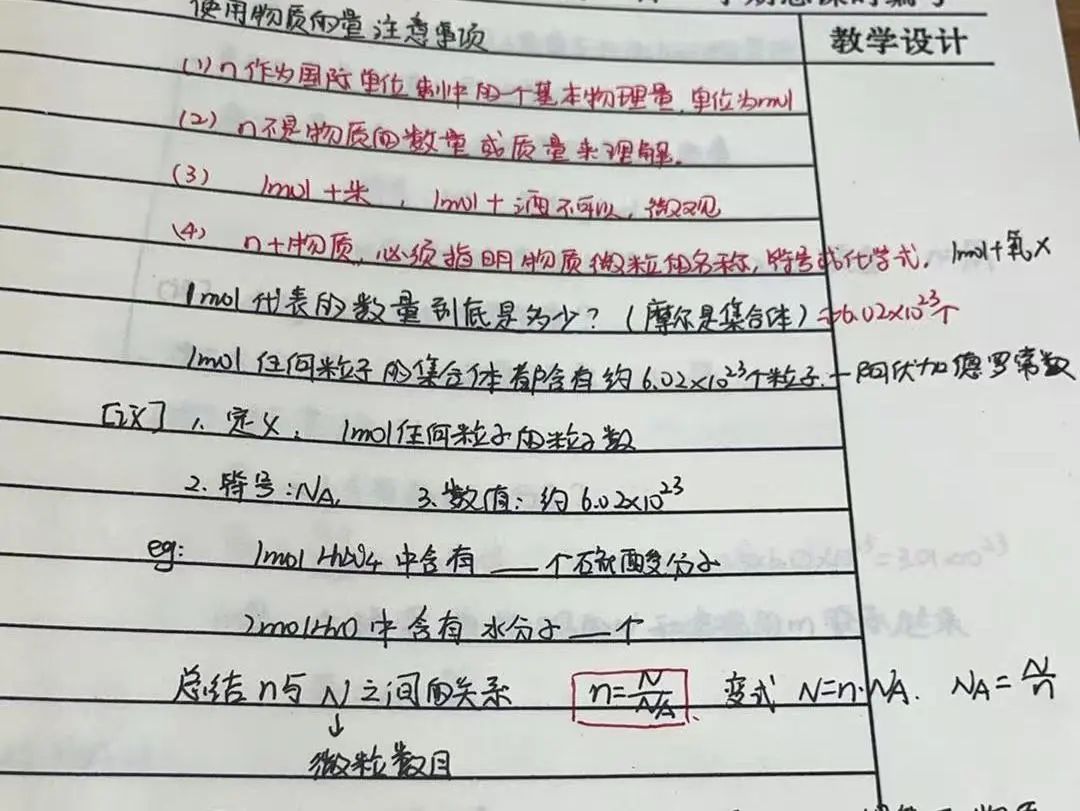 使用物质的量注意事项
教学设计
(1) n作为国际单位制中的一个基本物理量,单位为mol
(2) n不是物质的数量或质量来理解.
(3) 1mol+米, 1mol+酒不可以, 微观
(4) n+物质, 必须指明物质微粒的名称, 符号或化学式. 1mol+氧 ×
1mol代表的数量到底是多少? (摩尔是集合体) ⇒6.02×10²³个
1mol 任何粒子的集合体都含有约6.02×10²³个粒子. — 阿伏加德罗常数
1. 定义: 1mol任何粒子的粒子数
2. 符号: NA. 3. 数值: 约6.02×10²³
eg: 1mol H₂SO₄中含有___个硫酸分子
2mol H₂O 中含有水分子___个
总结n与N之间的关系 n=N/NA. 变式 N=n·NA. NA=N/n
↓
微粒数目